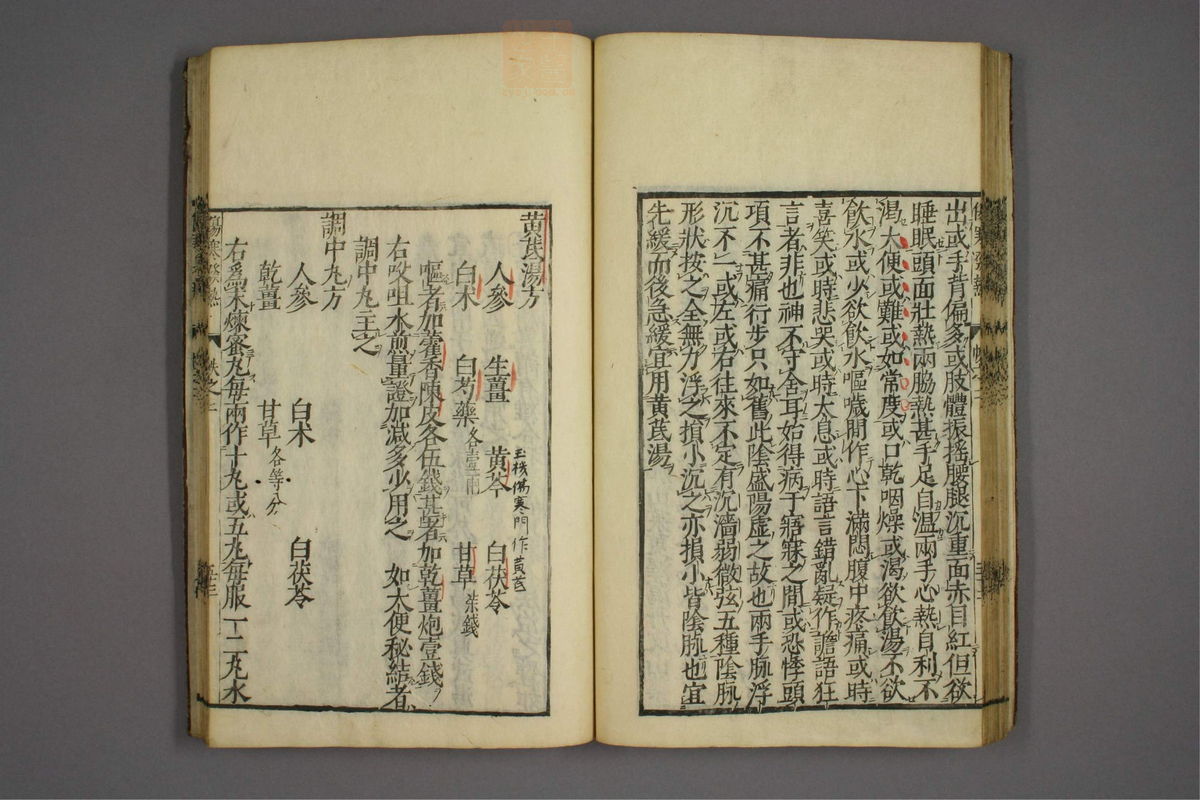 出或手背偏多或肢體振搖腰腿沉重面赤目紅但欲
睡眠頭面壯熱兩脇熱甚手足自温兩手心熱自利不
渴大便或難或如常度或口乾咽燥或渴欲飲湯不欲
飲水或少欲飲水嘔噦間作心下滿悶腹中疼痛或時
喜笑或時悲哭或時太息或時語言錯亂疑作譫語狂
言者非也神不守舍耳始得病于寤寐之間或恐悸頭
項不甚痛行步只如舊此陰盛陽虚之故也兩手脉浮
沉不一或左或右往來不定有沉濇弱微弦五種陰脉
形狀按之全無力浮之損小沉之亦損小皆陰脉也宜
先緩而後急緩宜用黄芪湯
黄芪湯方
人參 生薑 黄芩 白茯苓
玉機傷寒門作黄芪
白木 白芍藥各壹兩 甘草柒錢
嘔者加藿香陳皮各伍錢甚者加乾薑炮壹錢
右㕮咀水煎量證加減多少用之 如大便秘結者
調中丸主之
調中丸方
人參 白木 白茯苓
乾薑 甘草各等分
右爲末煉蜜丸每兩作十丸或五丸每服一二丸水